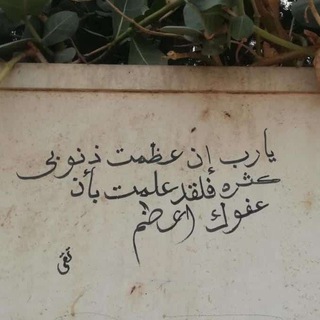 يارب إن عظمت ذنوبي
كثره فلقد علمت بأن
عفوك اعظم
تقى